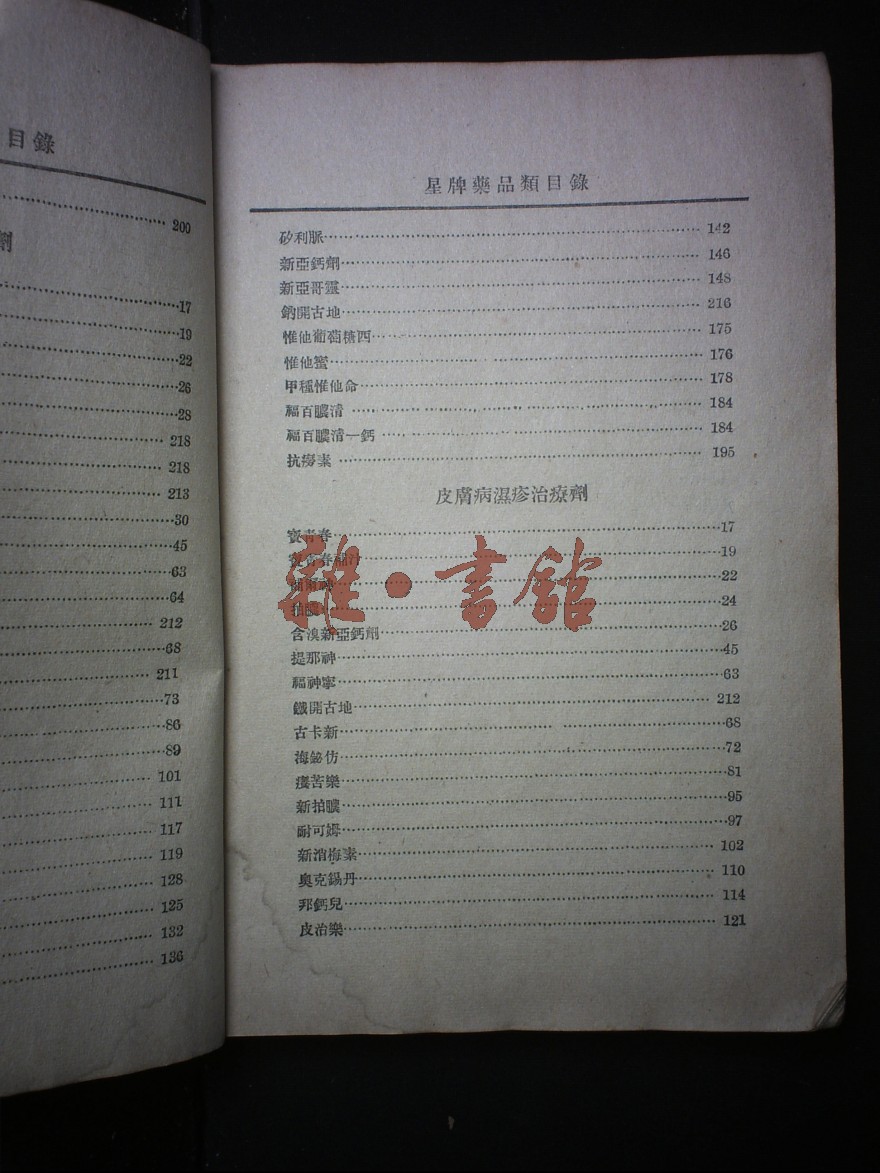 目錄
200
劑
17
19
22
26
28
218
218
213
30
45
63
64
212
68
211
73
86
89
101
111
117
119
128
125
132
136
星牌藥品類目錄
矽利脈 142
新亞鈣劑 146
新亞哥靈 148
鈉開古地 216
惟他葡萄糖西 175
惟他蜜 176
甲種惟他命 178
福百膿清 184
福百膿清一鈣 184
抗癆素 195
皮膚病濕疹治療劑
寶青春 17
寶青春補汁 19
22
拍膿 24
含溴新亞鈣劑 26
提那神 45
福神寧 63
鐵開古地 212
古卡新 68
海鉍仿 72
苦樂 81
新拍膿 95
耐可姆 97
新消梅素 102
奧克錫丹 110
邦鈣兒 114
皮治樂 121
雜·書館